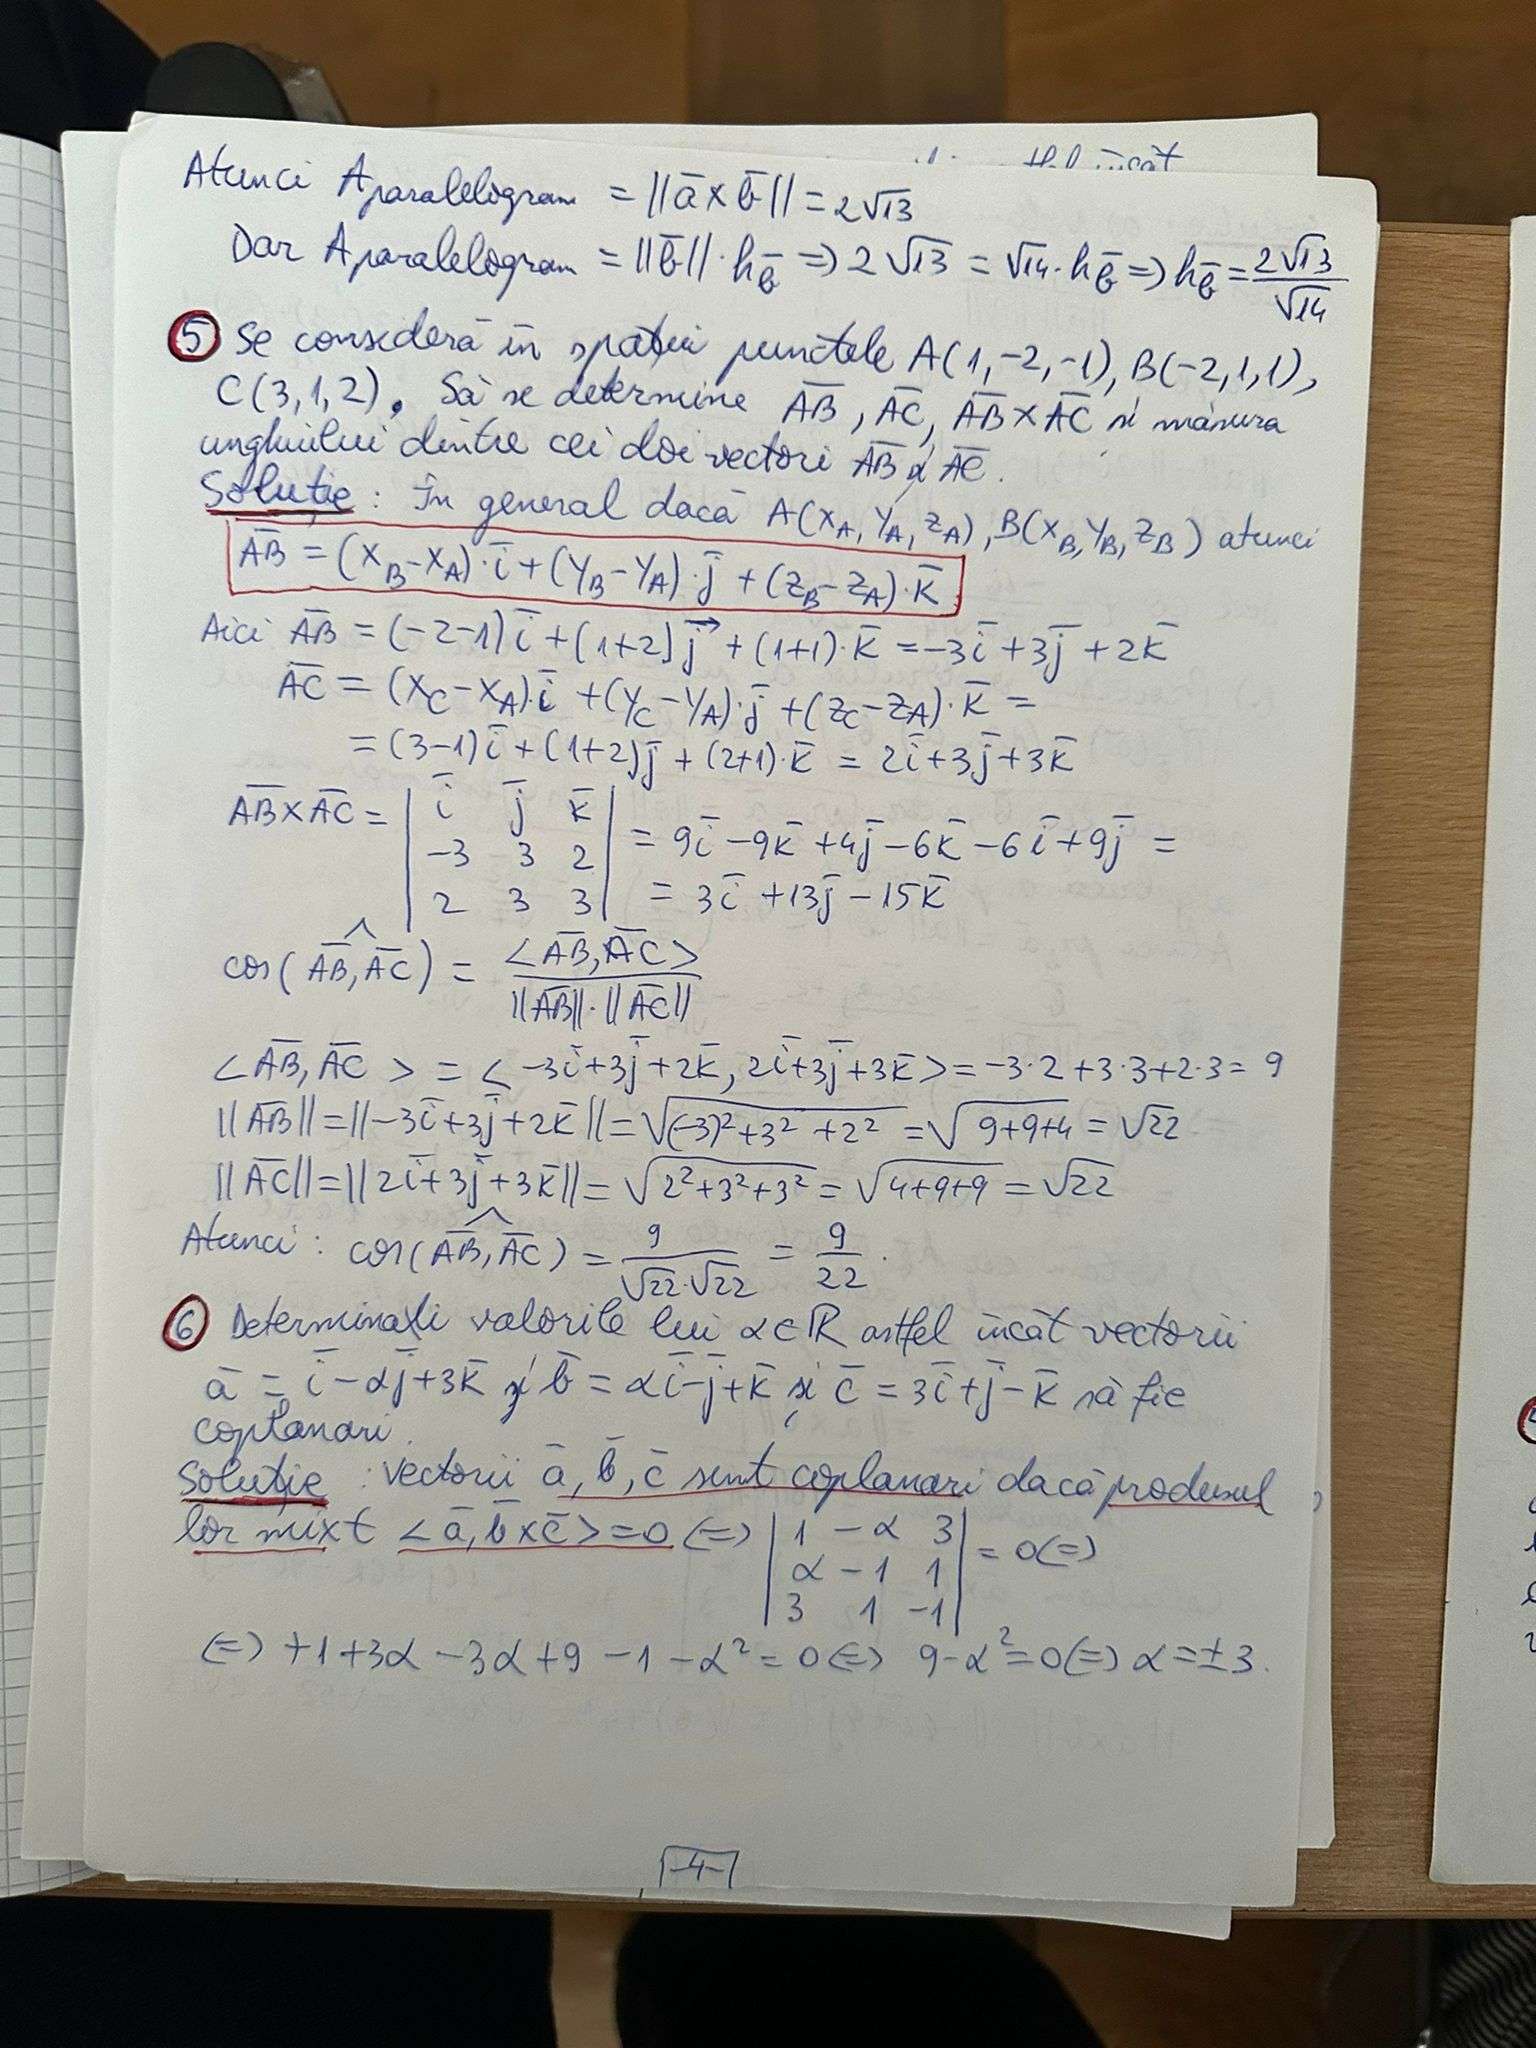 Atunci Aparalelogram = ||a̅ x b̅|| = 2√13
Dar Aparalelogram = ||b̅||·h_b̅ => 2√13 = √14·h_b̅ => h_b̅ = 2√13/√14
5 Se consideră în spațiu punctele A(1,-2,-1), B(-2,1,1),
C(3,1,2). Să se determine A̅B̅, A̅C̅, A̅B̅ x A̅C̅ și măsura
unghiului dintre cei doi vectori A̅B̅ și A̅C̅.
Soluție: În general dacă A(x_A, y_A, z_A), B(x_B, y_B, z_B) atunci
A̅B̅ = (x_B-x_A)·i̅ + (y_B-y_A)·j̅ + (z_B-z_A)·k̅
Aici A̅B̅ = (-2-1)i̅ + (1+2)j⃗ + (1+1)·k̅ = -3i̅ + 3j̅ + 2k̅
A̅C̅ = (x_C-x_A)·i̅ + (y_C-y_A)·j̅ + (z_C-z_A)·k̅ =
= (3-1)i̅ + (1+2)j̅ + (2+1)·k̅ = 2i̅+3j̅+3k̅
A̅B̅ x A̅C̅ = | i̅ j̅ k̅ |
| -3 3 2 | = 9i̅ - 9k̅ + 4j̅ - 6k̅ - 6i̅ + 9j̅ =
| 2 3 3 | = 3i̅ + 13j̅ - 15k̅
cos(A̅B̅, A̅C̅)^ = <A̅B̅, A̅C̅> / ||A̅B̅||·||A̅C̅||
<A̅B̅, A̅C̅> = <-3i̅+3j̅+2k̅, 2i̅+3j̅+3k̅> = -3·2+3·3+2·3 = 9
||A̅B̅|| = ||-3i̅+3j̅+2k̅|| = √((-3)²+3²+2²) = √(9+9+4) = √22
||A̅C̅|| = ||2i̅+3j̅+3k̅|| = √(2²+3²+3²) = √(4+9+9) = √22
Atunci: cos(A̅B̅, A̅C̅)^ = 9/(√22·√22) = 9/22.
6 Determinați valorile lui α∈ℝ astfel încât vectorii
a̅ = i̅ - αj̅ + 3k̅ și b̅ = αi̅ - j̅ + k̅ și c̅ = 3i̅ + j̅ - k̅ să fie
coplanari.
Soluție: Vectorii a̅, b̅, c̅ sunt coplanari dacă produsul
lor mixt <a̅, b̅ x c̅> = 0 (=) | 1 -α 3 |
| α -1 1 | = 0 (=)
| 3 1 -1 |
(=) +1+3α-3α+9-1-α² = 0 (=) 9-α² = 0 (=) α = ±3.
-4-